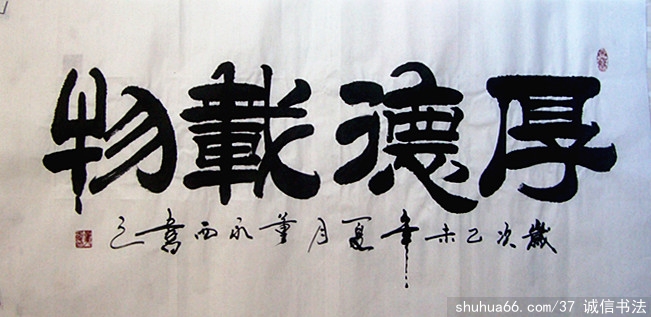 厚德載物
歲次乙未年夏月董永西書之
shuhua66.com/37 诚信书法